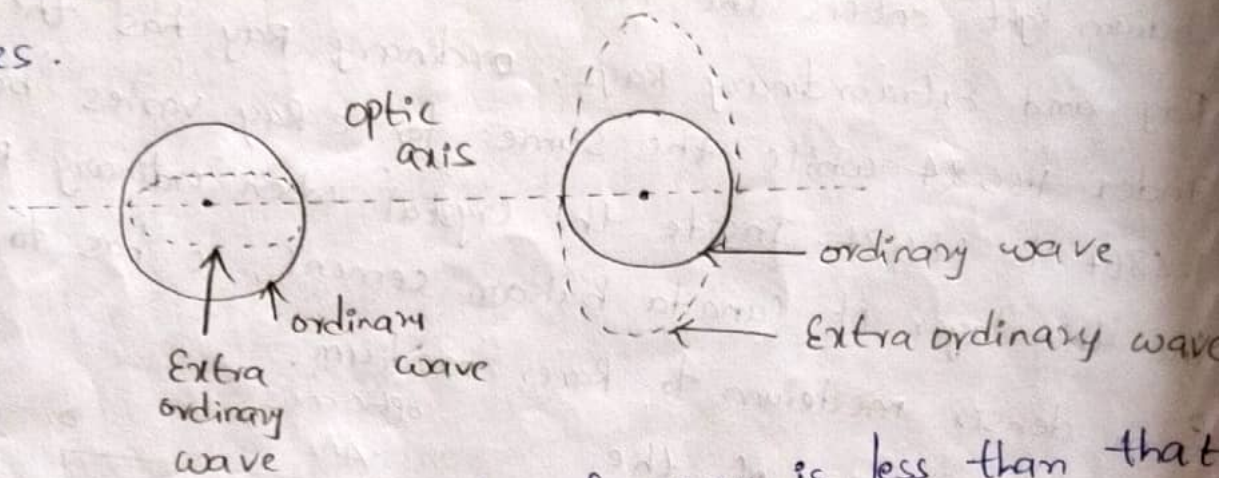 es.
optic
axis
ordinary wave
Extra ordinary wave
ordinary
wave
Extra
ordinary
wave
is less than that